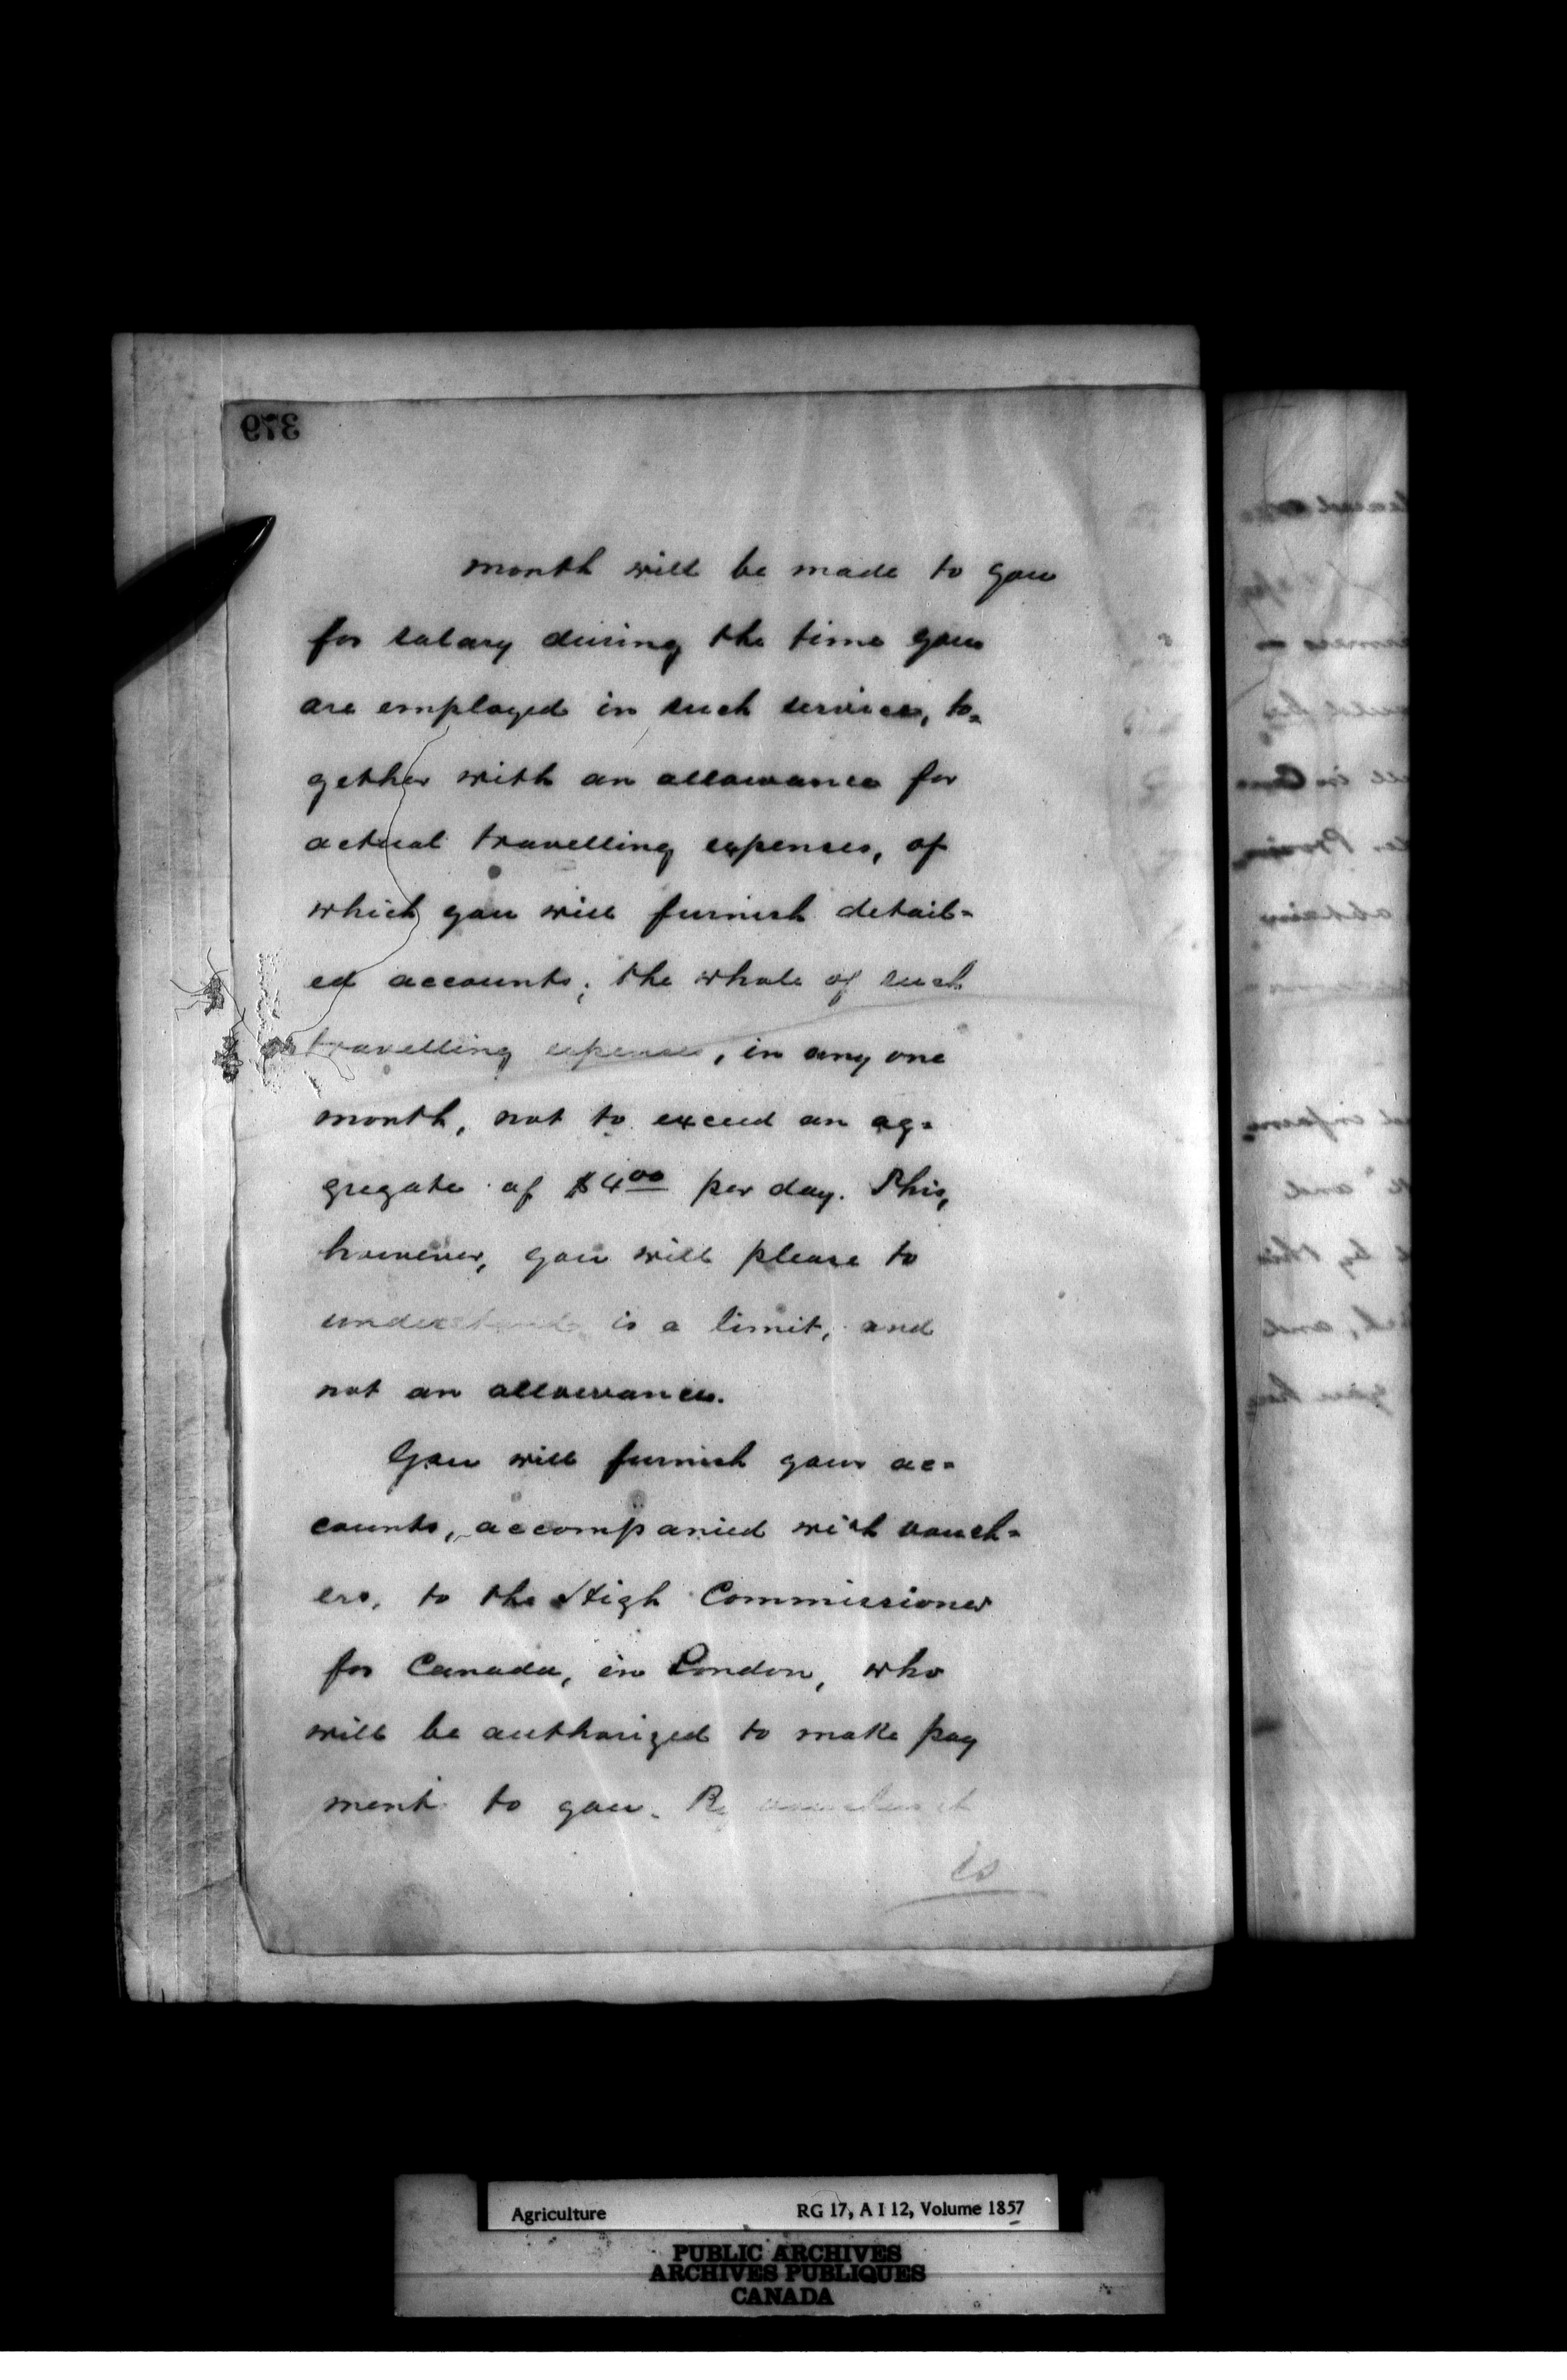 379
month will be made to you
for salary during the time you
are employed in such service, to=
gether with an allowance for
actual travelling expenses, of
which you will furnish detail=
ed accounts; the whole of such
travelling expenses, in any one
month, not to exceed an ag=
gregate of $4.00 per day. This,
however, you will please to
understand, is a limit, and
not an allowance.
You will furnish your ac=
counts, accompanied with vouch=
ers, to the High Commissioner
for Canada, in London, who
will be authorized to make pay
ment to you. By
is
Agriculture RG 17, A I 12, Volume 1857
PUBLIC ARCHIVES
ARCHIVES PUBLIQUES
CANADA